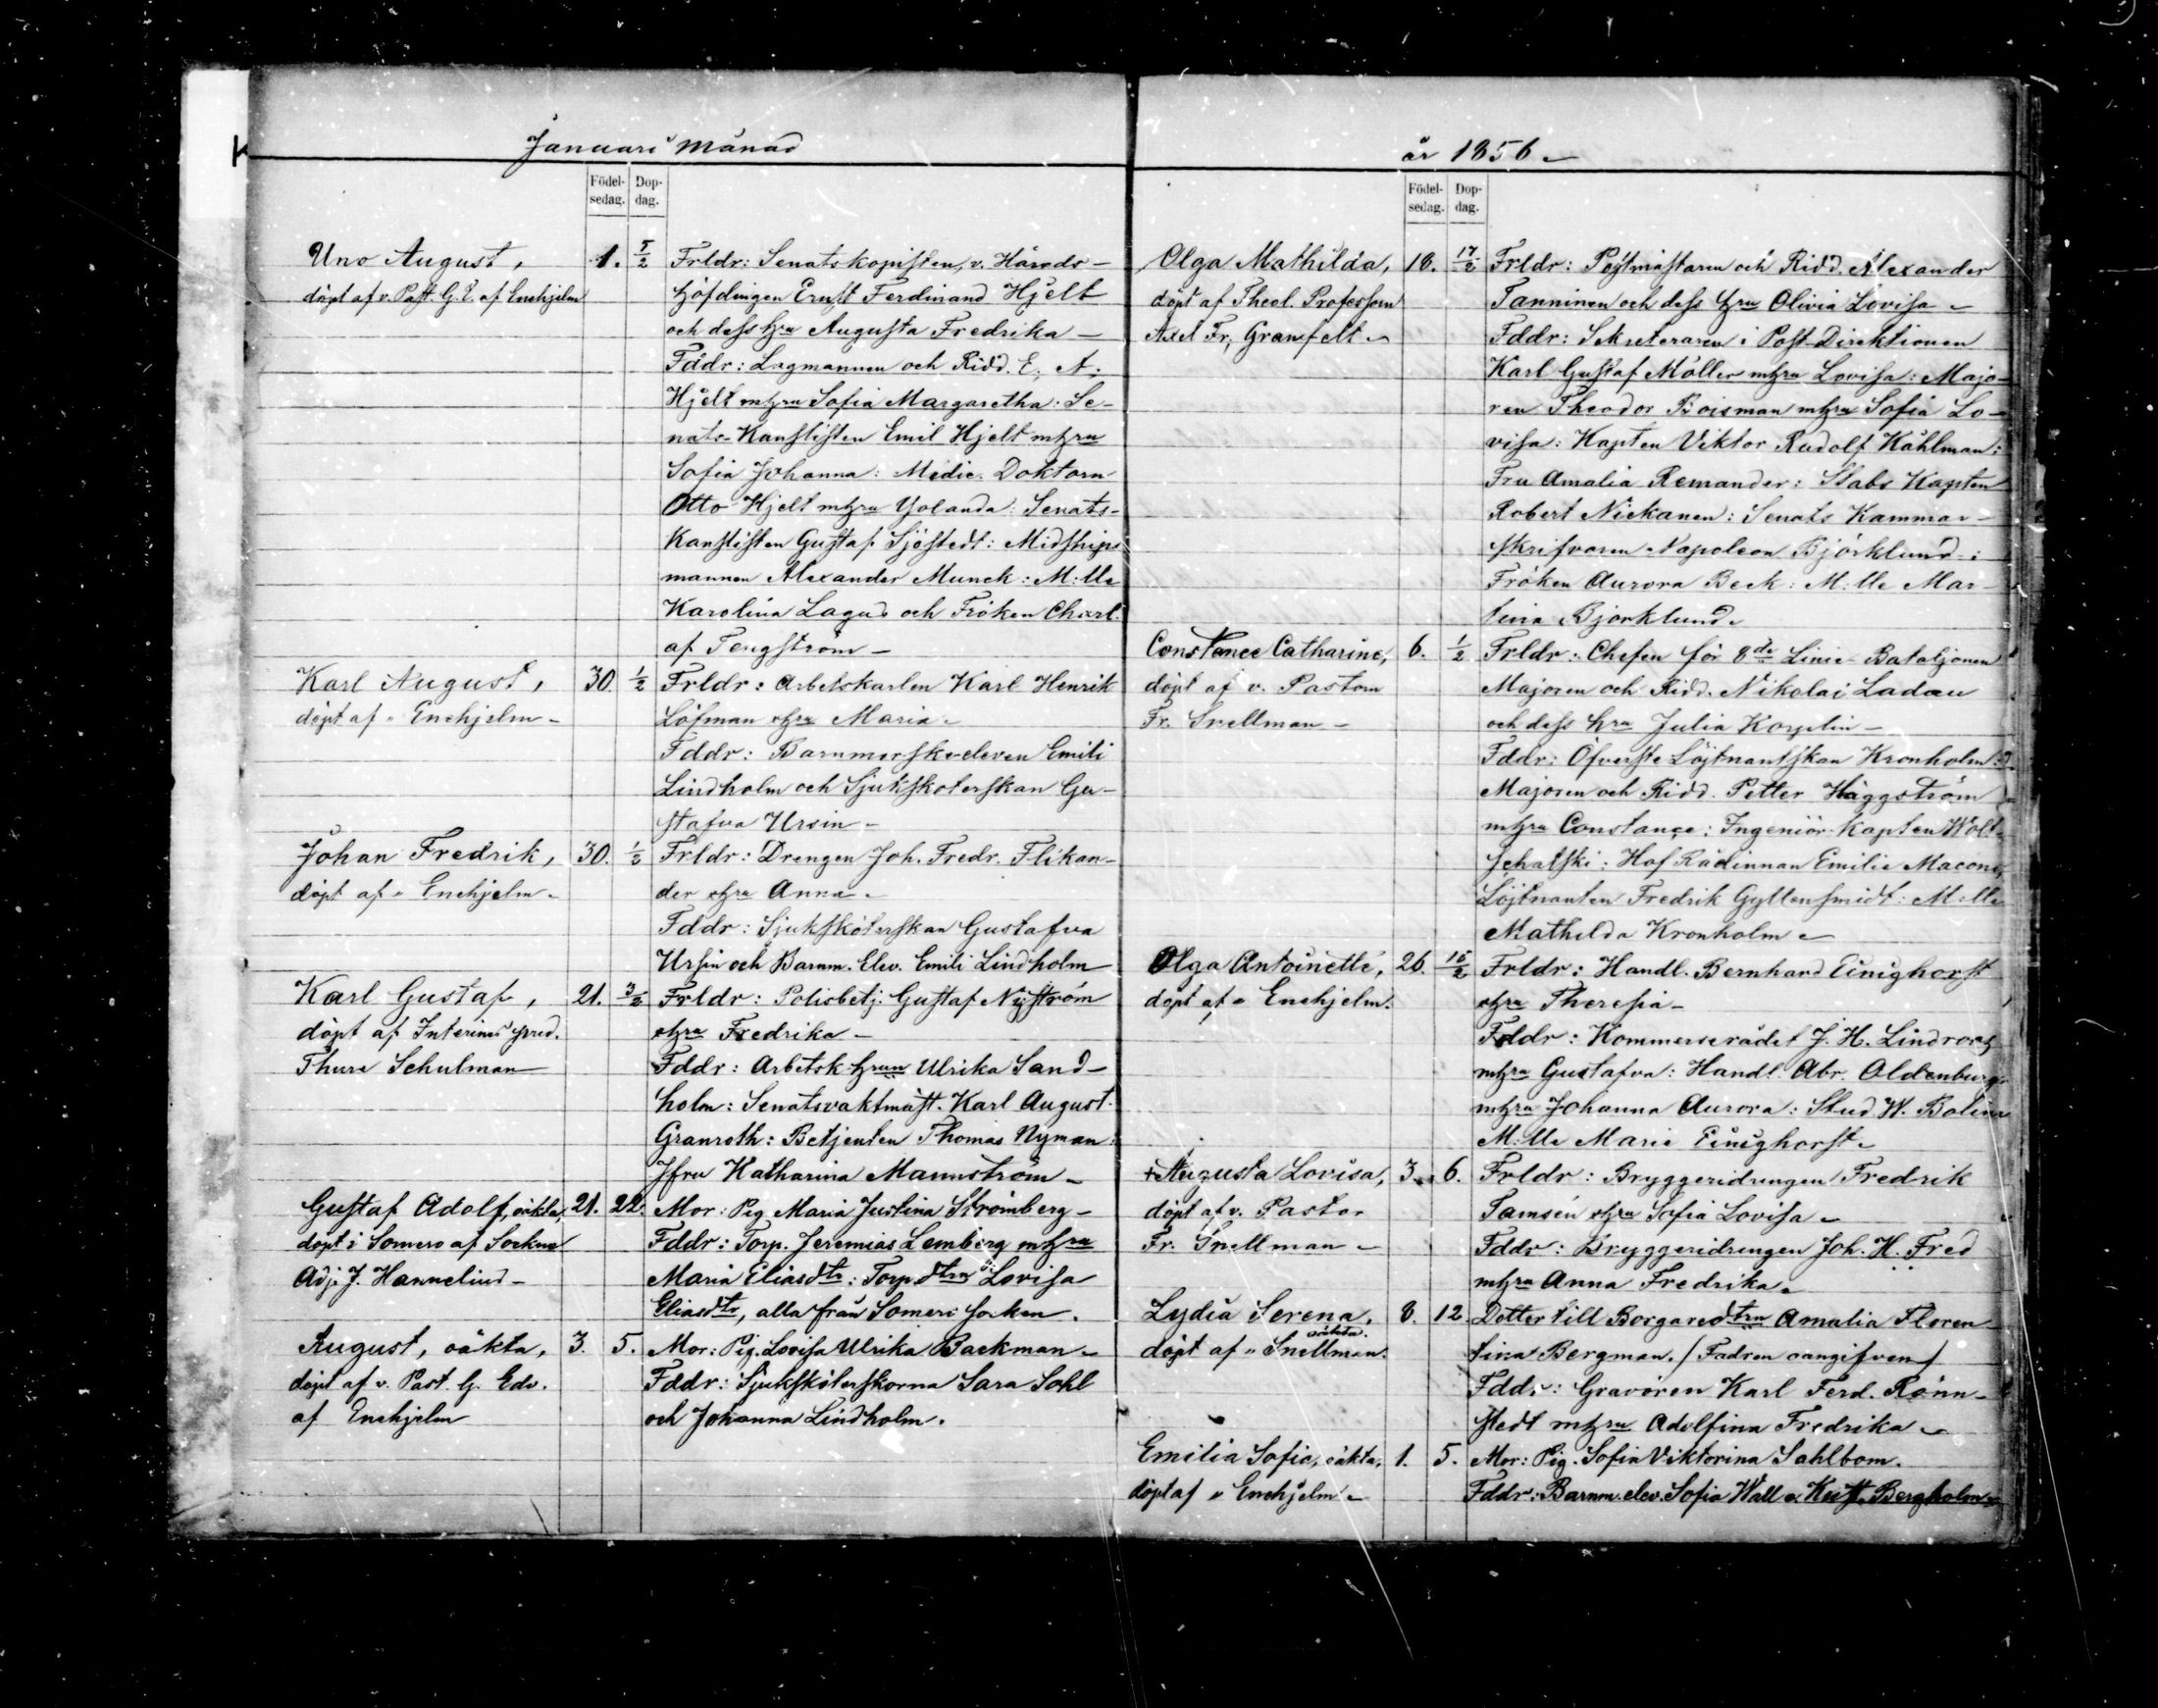 Januari månad
Födel-
sedag.
Dop-
dag.
Uno August,
döpt af v. Past. G. E. af Enehjelm
1. 5/2
Frldr: Senatskopisten, v. Härads-
höfdingen Ernst Ferdinand Hjelt
och dess hru Augusta Fredrika –
Fddr: Lagmannen och Ridd. E. A.
Hjelt mhru Sofia Margaretha: Se-
nats-Kanslisten Emil Hjelt mhru
Sofia Johanna: Medic. Doktorn
Otto Hjelt mhru Yolanda: Senats-
Kanslisten Gustaf Sjöstedt: Midships
mannen Alexander Munck: M:lle
Karolina Lagus och Fröken Charl.
af Tengström –
Karl August,
döpt af " Enehjelm –
30. 1/2
Frldr: Arbetskarlen Karl Henrik
Löfman ohru Maria –
Fddr: Barnmorske-eleven Emili
Lindholm och Sjuksköterskan Gu-
stafva Ursin –
Johan Fredrik,
döpt af " Enehjelm –
30. 1/2
Frldr: Drengen Joh. Fredr. Flikan-
der ohru Anna –
Fddr: Sjuksköterskan Gustafva
Ursin och Barnm. Elev. Emili Lindholm
Karl Gustaf,
döpt af Interims pred.
Thure Schulman
21. 3/2
Frldr: Polisbetj. Gustaf Nyström
ohru Fredrika –
Fddr: Arbetsk. hrun Ulrika Sand-
holm: Senatsvaktmäst. Karl August
Granroth: Betjenten Thomas Nyman:
Jfru Katharina Mannström –
Gustaf Adolf, oäkta,
döpt i Somero af Sockne
Adj. J. Hannelius –
21. 22.
Mor: Pig. Maria Justina Strömberg –
Fddr: Torp. Jeremias Lemberg mhru
Maria Eliasdtr: Torp.dtrn Lovisa
Eliasdtr, alla från Somero socken.
August, oäkta,
döpt af v. Past. G. Edv.
af Enehjelm
3. 5.
Mor: Pig. Lovisa Ulrika Backman –
Fddr: Sjuksköterskorna Sara Sohl
och Johanna Lindholm.
år 1856 –
Födel-
sedag.
Dop-
dag.
Olga Mathilda,
döpt af Theol. Professorn
Axel Fr. Granfelt –
18. 17/2
Frldr: Postmästaren och Ridd. Alexander
Tanninen och dess hru Olivia Lovisa –
Fddr: Sekreteraren i Post-Direktionen
Karl Gustaf Möller mhru Lovisa: Majo-
ren Theodor Boisman mhru Sofia Lo-
visa: Kapten Viktor Rudolf Kåhlman:
Fru Amalia Remander: Stabs Kapten
Robert Niekanen: Senats Kammar-
skrifvaren Napoleon Björklund:
Fröken Aurora Beck: M:lle Mar-
tina Björklund –
Constance Catharine,
döpt af v. Pastorn
Fr. Snellman –
6. 1/2
Frldr: Chefen för 8de Linie-Bataljonen
Majoren och Ridd. Nikolai Ladau
och dess hru Julia Korpelin –
Fddr: Öfverste Löjtnantskan Kronholm:
Majoren och Ridd. Petter Häggström
mhru Constance: Ingeniör-kapten Wolt-
schatski: Hof Rådinnan Emilie Macone,
Löjtnanten Fredrik Gyllensmidt: M:lle
Mathilda Kronholm –
Olga Antoinette,
döpt af " Enehjelm.
26. 16/2
Frldr: Handl. Bernhard Einighorst
ohru Theresia –
Fddr: Kommerserådet J. H. Lindroos
mhru Gustafva: Handl. Abr. Oldenburg
mhru Johanna Aurora: Stud. W. Bolin
M:lle Marie Einighorst –
+ Augusta Lovisa,
döpt af v. Pastor
Fr. Snellman –
3. 6.
Frldr: Bryggeridrengen Fredrik
Tamsén ohru Sofia Lovisa –
Fddr: Bryggeridrengen Joh. H. Fred
mhru Anna Fredrika –
Lydia Serena,
oäkta.
döpt af " Snellman.
8. 12.
Dotter till Borgaredtrn Amalia Floren-
tina Bergman. / Fadren oangifven /
Fddr: Gravören Karl Ferd. Rönn-
stedt mhru Adolfina Fredrika –
Emilia Sofia, oäkta,
döpt af " Enehjelm –
1. 5.
Mor: Pig. Sofia Viktorina Sahlbom.
Fddr: Barnm. elev. Sofia Wall o. Bergholm –